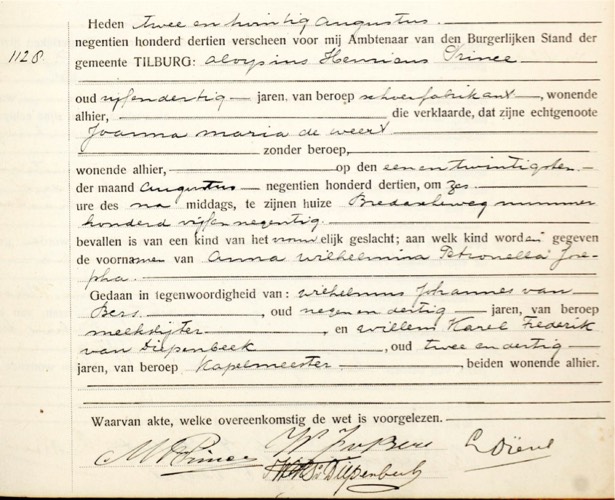 Heden twee en twintig augustus.
negentien honderd dertien verscheen voor mij Ambtenaar van den Burgerlijken Stand der
1128. gemeente TILBURG: Aloysius Henricus Prinee
oud vijfendertig jaren, van beroep , wonende
alhier, die verklaarde, dat zijne echtgenoote
Joanna Maria de Weert
zonder beroep,
wonende alhier, op den eenentwintigsten
der maand Augustus negentien honderd dertien, om zes
ure des na middags, te zijnen huize Bredascheweg nummer
honderd vijfennegentig.
bevallen is van een kind van het vrouwelijk geslacht; aan welk kind worden gegeven
de voornamen van Anna Wilhelmina Petronella Jose-
pha.
Gedaan in tegenwoordigheid van: Wilhelmus Johannes van
Bers , oud negen en dertig jaren, van beroep
, en Willem Karel Frederik
van Diepenbeek , oud twee en dertig
jaren, van beroep Kapelmeester , beiden wonende alhier.
Waarvan akte, welke overeenkomstig de wet is voorgelezen.